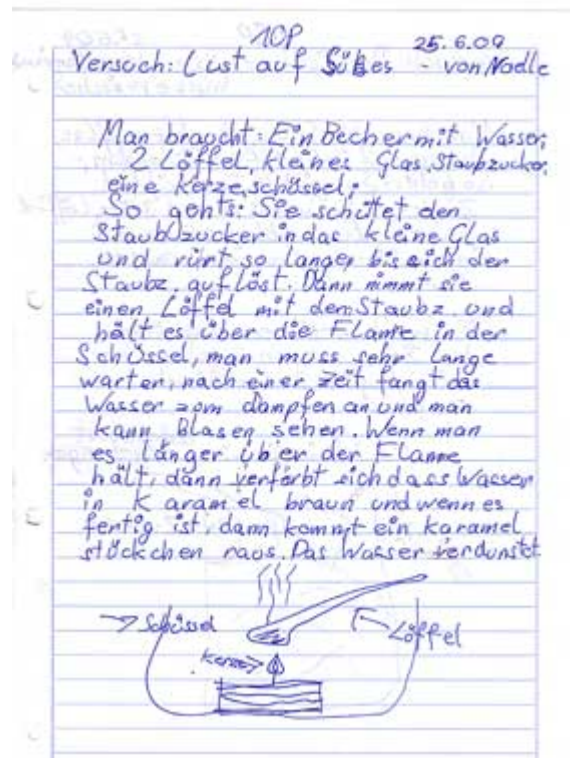 10P
25.6.09
Versuch: Lust auf Süßes - von Noelle
Man braucht: Ein Becher mit Wasser,
2 Löffel, kleines Glas, Staubzucker,
eine Kerze, schüssel,
So gehts: Sie schütet den
Staubzucker in das kleine Glas
und rürt so lange, bis sich der
Staubz. auflöst. Dann nimmt sie
einen Löffel mit dem Staubz. und
hält es über die Flamme in der
Schüssel, man muss sehr lange
warten, nach einer Zeit fangt das
Wasser zom dampfen an und man
kann Blasen sehen. Wenn man
es länger über der Flamme
hält, dann verfärbt sich dass Wasser
in Karamel braun und wenn es
fertig ist, dann kommt ein karamel
stückchen raus. Das Wasser verdunstet
Schüssel
Löffel
Kerze